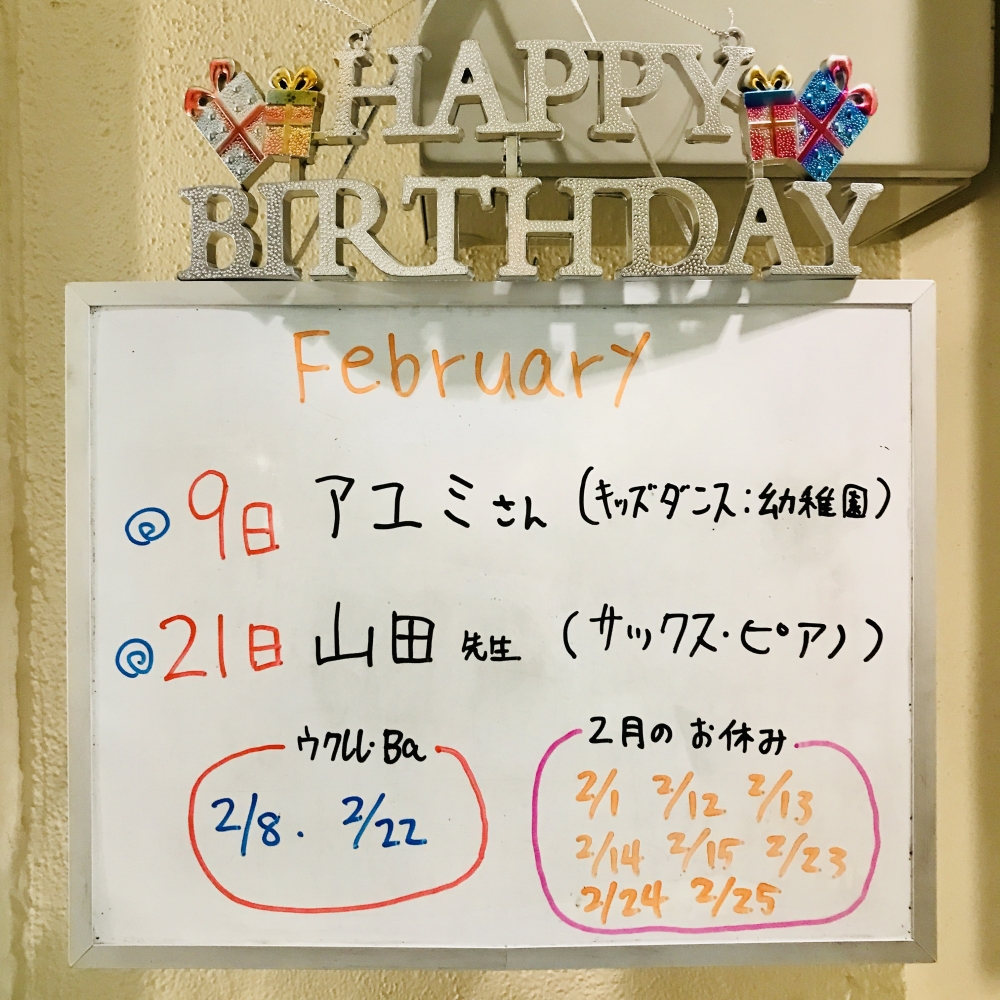 HAPPY
BIRTHDAY
February
9日 アユミさん (キッズダンス:幼稚園)
21日 山田 先生 (サックス・ピアノ)
ウクレレ・Ba
2/8. 2/22
2月の お休み
2/1 2/12 2/13
2/14 2/15 2/23
2/24 2/25